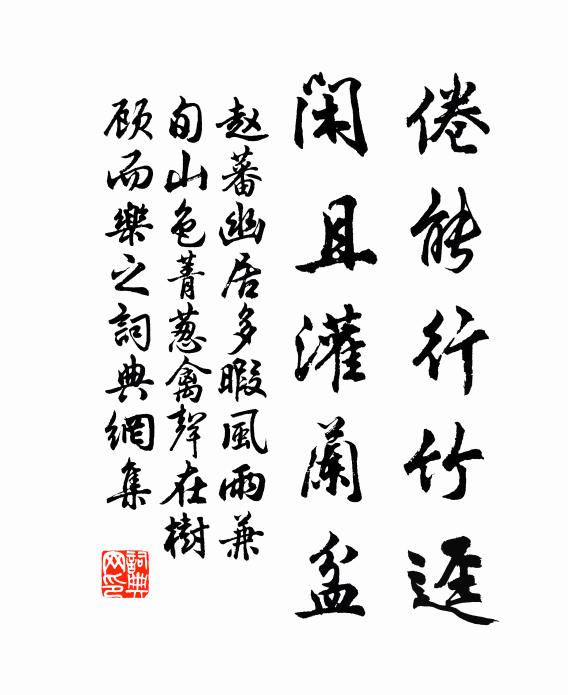 倦能行竹迳
闲且灌蘭盆
赵蕃幽居多暇風雨兼
旬山色菁葱禽聲在樹
顾而樂之詞典網集
詞典网印